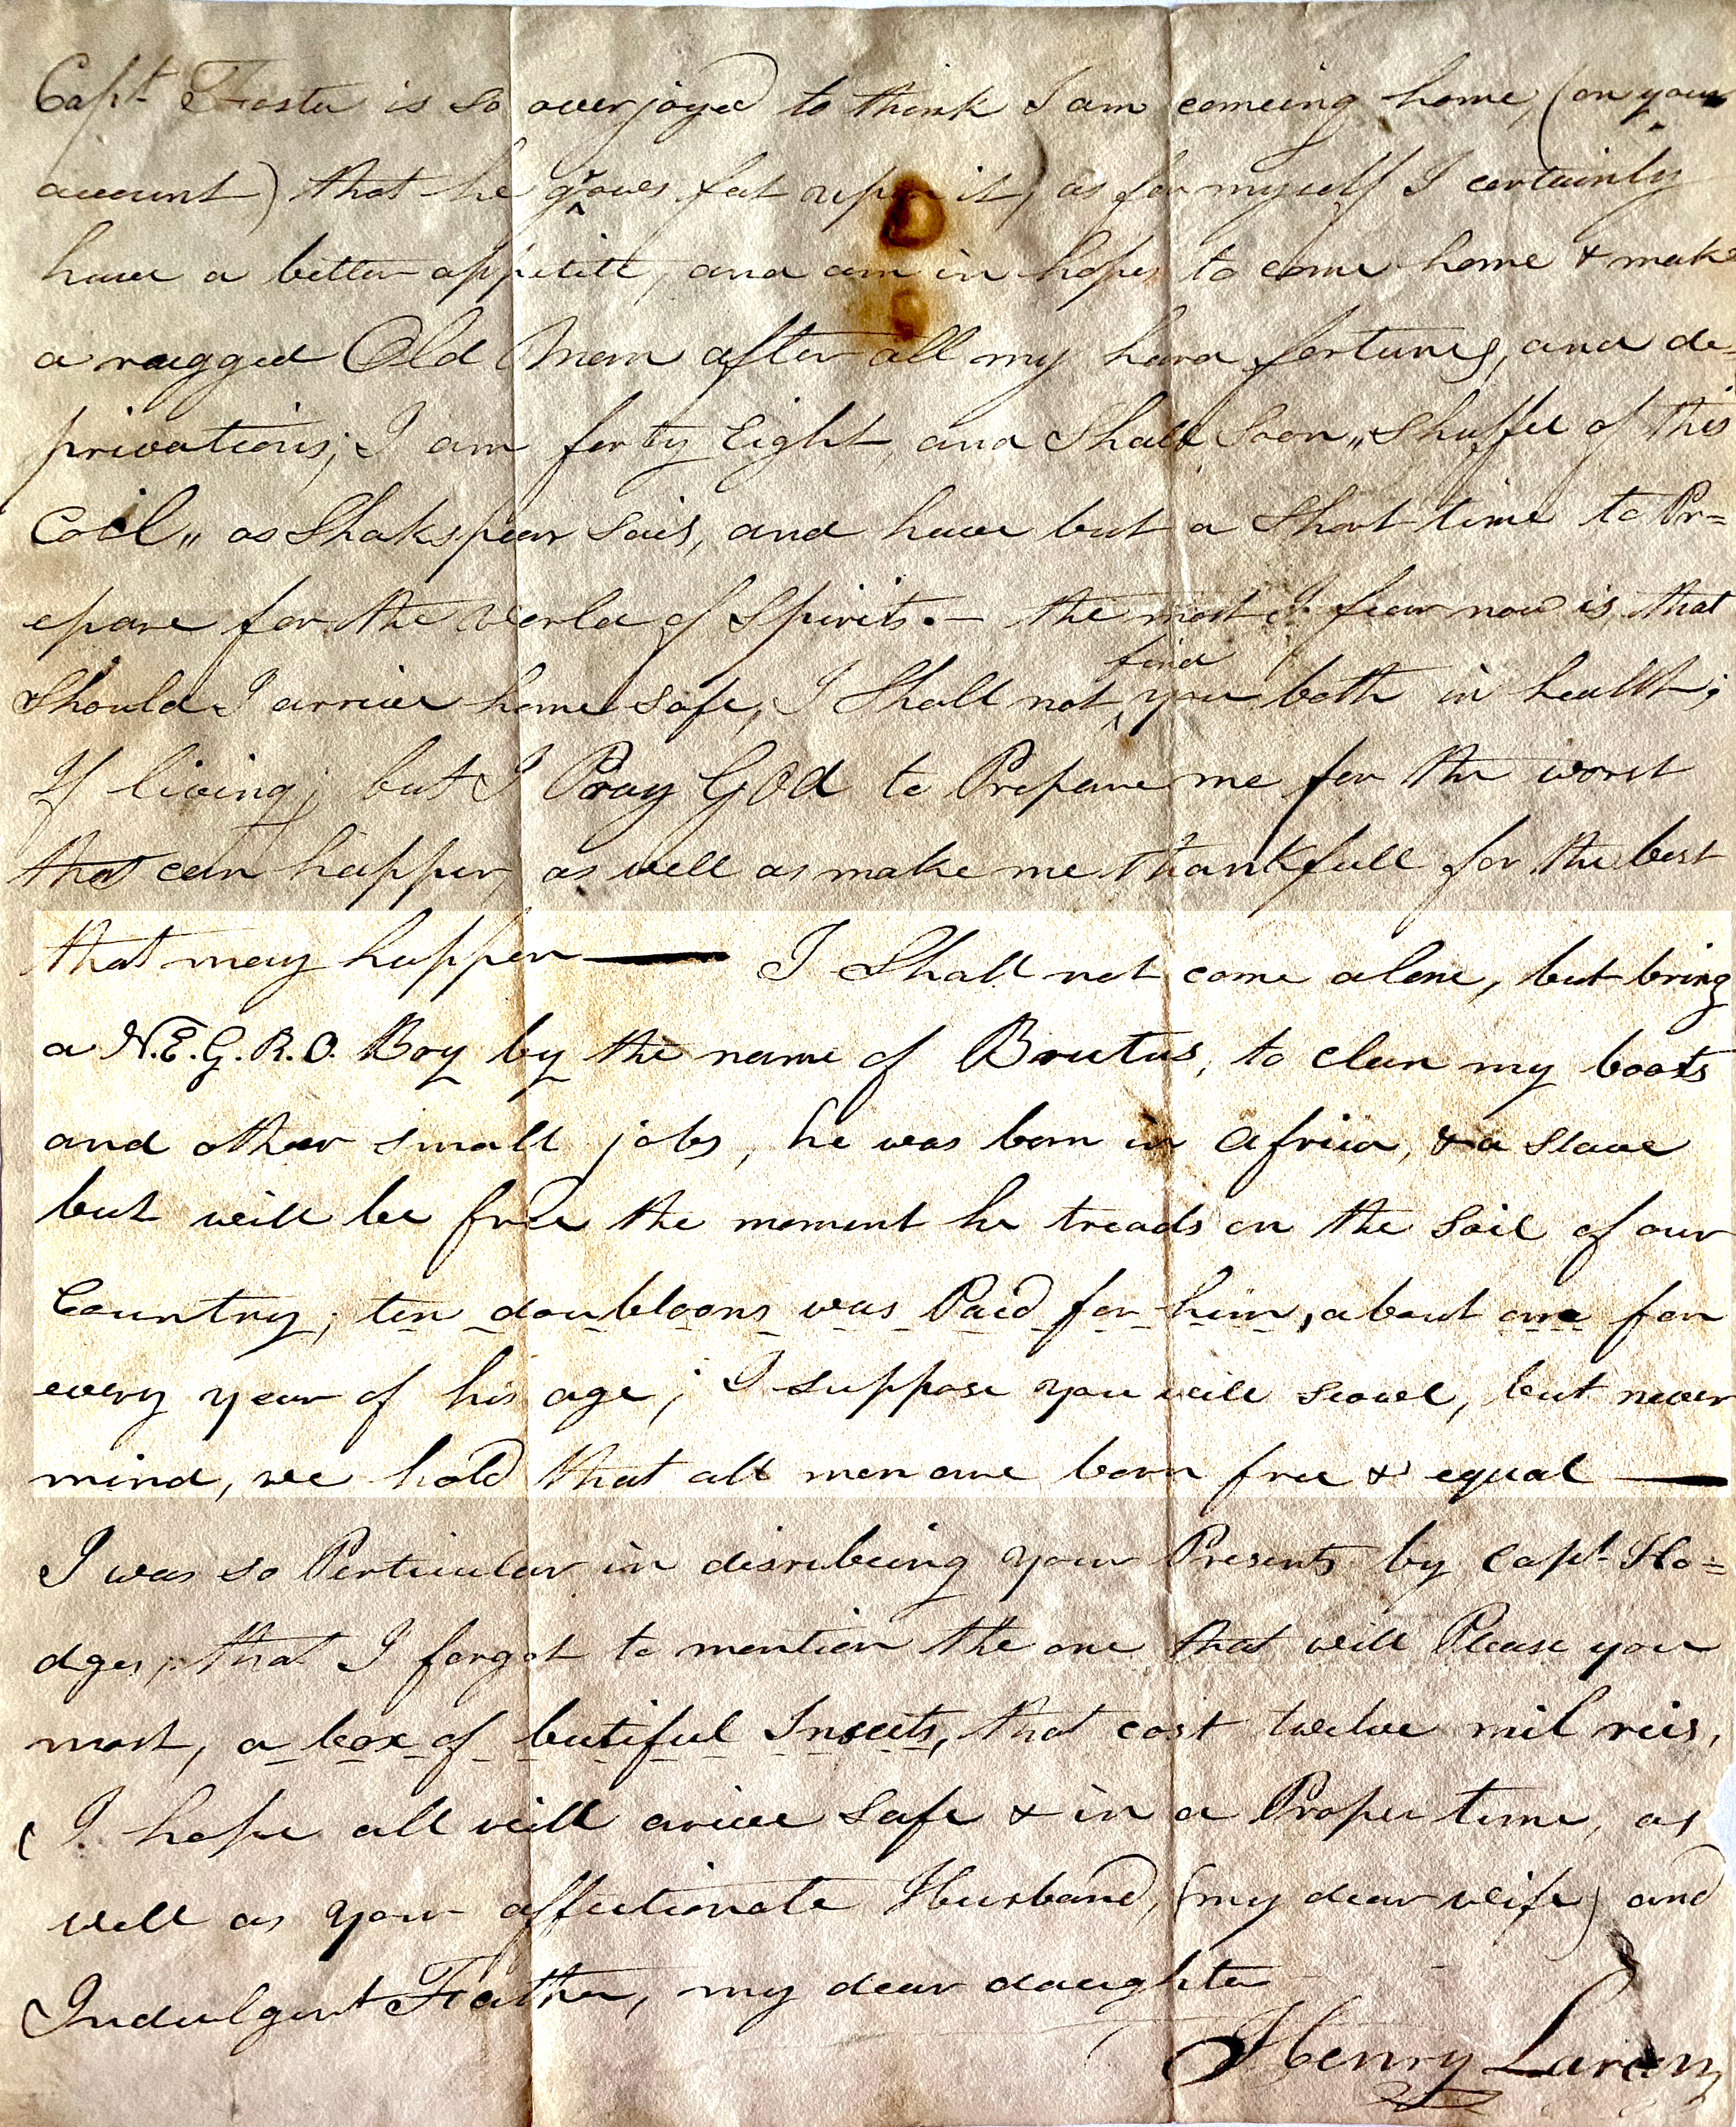 Capt. Foster is so overjoyed to think I am comeing home, (on your
account) that he grows fat upon it, as for myself I certainly
have a better appetite, and am in hopes to come home & make
a rugged Old Man after all my hard fortunes, and de-
privations; I am forty Eight, and Shall Soon „Shuffle of this
Coil„ as Shakspear Sais, and have but a Short time to Pr=
epare for the World of Spirits.— the most I fear now is, that
Should I arrive home safe, I Shall not find you both in health;
If living; but I Pray God to Prepare me for the worst
that can happen, as well as make me thankfull for the best
that may happen — I Shall not come alone, but bring
a N.E.G.R.O. Boy by the name of Brutus, to clean my boots
and other small jobs, he was born in Africa, & a Slave
but will be free the moment he treads on the Soil of our
Country; ten doubloons was Paid for him, about one for
every year of his age; I suppose you will scowl, but never
mind, we hold that all men are born free & equal —
I was so Perticular in discribeing your Presents by Capt. Ho=
dges, that I forgot to mention the one that will Please you
most, a box of butiful Insects, that cost twelve mil reis,
I hope all will arive Safe & in a Proper time, as
well as your affectionate Husband, (my dear wife) and
Indulgent Father, my dear daughter
Henry